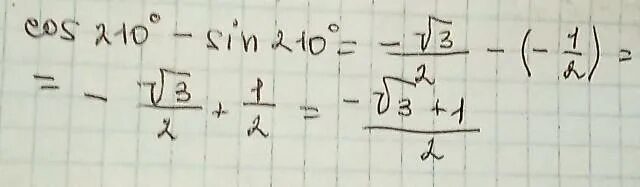 cos 210° - sin 210° = - √3/2 - (- 1/2) =
= - √3/2 + 1/2 = (-√3 + 1)/2